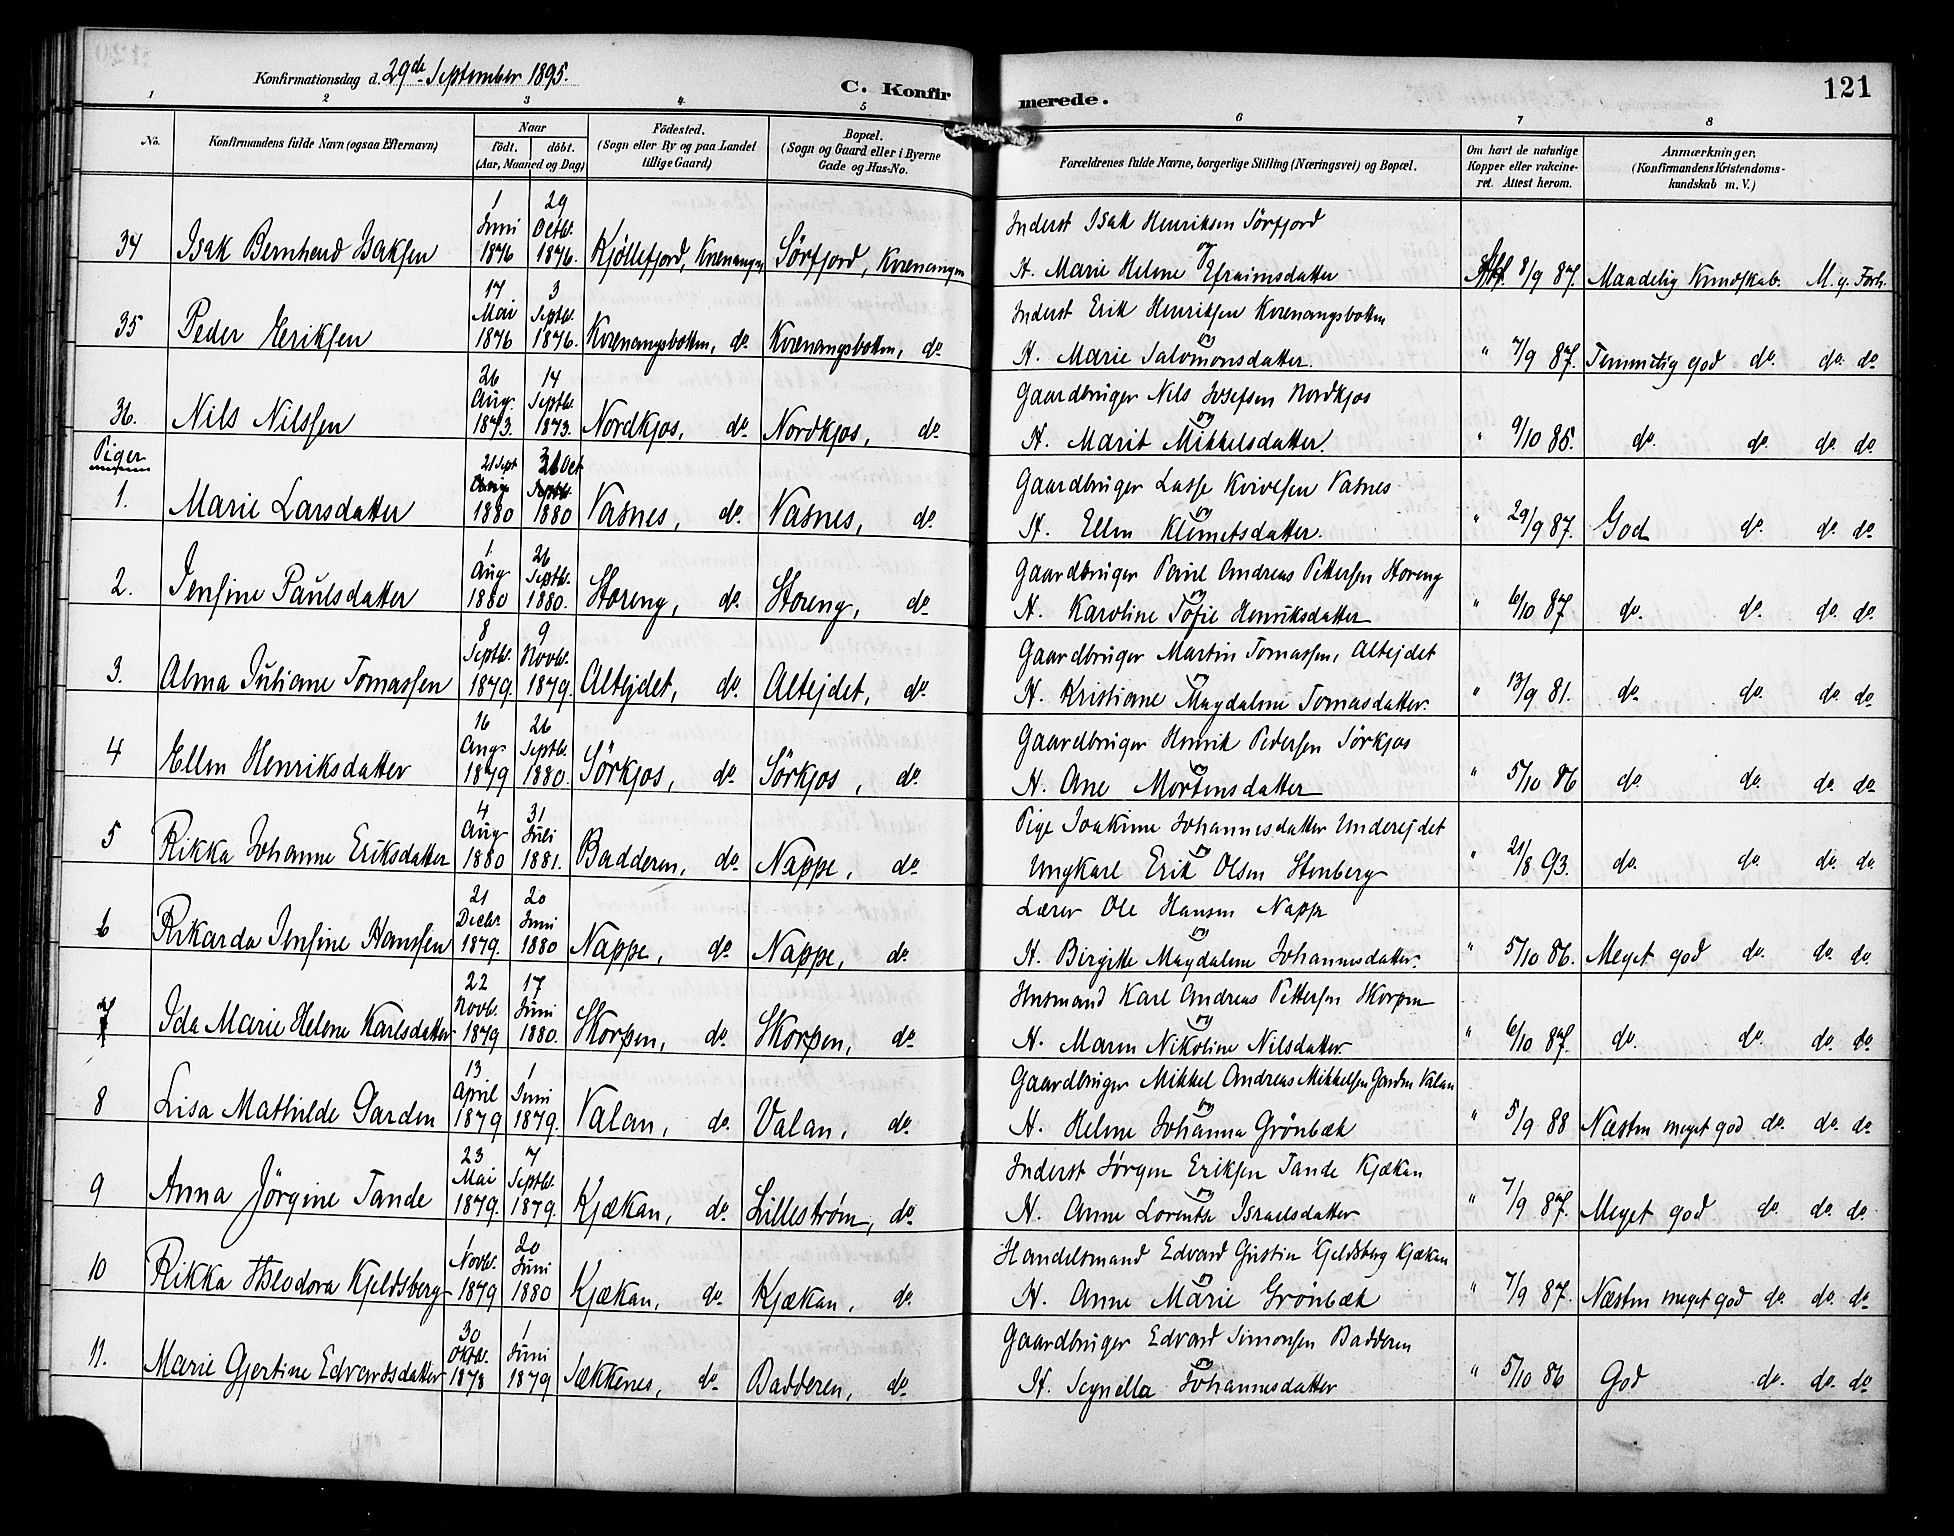 Konfirmationsdag d. 29de September 1895.
C. Konfirmerede.
121
1 2 3 4 5 6 7 8
No. Konfirmandens fulde Navn (ogsaa Efternavn) Naar födt. döbt. (Aar, Maaned og Dag) Födested. (Sogn eller By og paa Landet tillige Gaard) Bopæl. (Sogn og Gaard eller i Byerne Gade og Hus-No.) Forældrenes fulde Navne, borgerlige Stilling (Næringsvei) og Bopæl. Om havt de naturlige Kopper eller vakcineret. Attest herom. Anmærkninger, (Konfirmandens Kristendomskundskab m. V.)
34 Isak Bernhard Isaksen 1 Juni 1876 29 Octbr. 1876. Kjöllefjord, Kvenangen Sörfjord, Kvænangen Inderst Isak Henriksen Sörfjord
og H. Marie Helene Efraimsdatter Att. 8/9 87. Maadelig Kundskab. M. g. Forh.
35 Peder Eriksen 17 Mai 1876 3 Septbr. 1876. Kvænangsbotten, do. Kvænangsbotten, do. Inderst Erik Henriksen Kvenangsbotten
og H. Marie Salomonsdatter. " 7/9 87. Temmelig god do. do. do
36. Nils Nilssen 26 Aug. 1873. 14 Septbr. 1873. Nordkjos, do. Nordkjos, do. Gaardbruger Nils Josefsen Nordkjos
og H. Marit Mikkelsdatter. " 9/10 85. do. do. do. do
Piger
1. Marie Larsdatter 21 Sept 1880 31 Oct 1880 Vasnes, do. Vasnes, do. Gaardbruger Lasse Kvivesen Vasnes
og H. Ellen Klemetsdatter. " 29/9 87. God do. do. do.
2. Jensine Paulsdatter 1 Aug 1880 26 Septbr. 1880. Storeng, do. Storeng, do. Gaardbruger Paul Andreas Pettersen Storeng
og H. Karoline Tofie Henriksdatter " 6/10 87 do. do. do. do.
3. Alma Juliane Tomassen 8 Septbr. 1879. 9 Novbr. 1879. Altejdet, do. Altejdet, do. Gaardbruger Martin Tomassen, Altejdet
og H. Kristiane Magdalene Tomasdatter. " 13/9 81. do. do. do. do
4 Ellen Henriksdatter 16 Aug. 1879 26 Septbr. 1880. Sörkjos, do. Sörkjos, do. Gaardbruger Henrik Pedersen Sörkjos
og H. Ane Mortensdatter " 5/10 86 do. do. do. do
5 Rikka Johanne Eriksdatter 4 Aug 1880 31 Juli 1881. Badderen, do. Nappe, do. Pige Joakime Johannesdatter Underejdet
og Ungkarl Erik Olsen Stenberg " 21/8 93. do. do. do. do.
6 Rikarda Jensine Hanssen 21 Decbr. 1879. 20 Juni 1880 Nappe, do. Nappe, do. Lærer Ole Hansen Nappe
og H. Birgitte Magdalene Johannesdatter. " 5/10 86. Meget god do. do. do.
7 Ida Marie Helene Karlsdatter 22 Novb. 1879 17 Juni 1880. Skorpen, do. Skorpen, do. Husmand Karl Andreas Pettersen Skorpen
og H. Maren Nikoline Nilsdatter " 6/10 87. do. do. do. do.
8 Lisa Mathilde Garden 13 April 1879 1 Juni 1879. Valan, do. Valan, do. Gaardbruger Mikkel Andreas Mikkelsen Garden Valan
og H. Helene Johanna Grönbæk " 5/9 88 Næsten meget god do. do. do
9 Anna Jörgine Tande 23 Mai 1879. 7 Septbr. 1879. Kjækan, do. Lilleström, do. Inderst Jörgen Eriksen Tande Kjækan
og H. Anne Lorentse Israelsdatter " 7/9 87. Meget god do. do. do.
10 Rikka Kjeldsberg 1 Novbr. 1879 20 Juni 1880 Kjækan, do. Kjækan, do. Handelsmand Edvard Gustin Kjeldsberg Kjækan
og H. Anne Marie Grönbæk " 7/9 87. Næsten meget god do. do. do
11. Marie Gjertine Edvardsdatter 30 Oktbr. 1878 1 Juni 1879 Sækkenes, do. Badderen, do. Gaardbruger Edvard Simonsen Badderen
og H. Johannesdatter " 5/10 86 God do. do. do